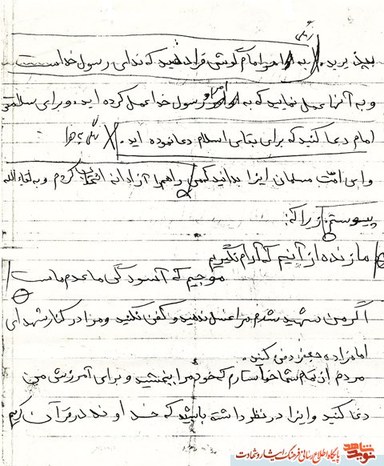 بپذیرید. و به امام گوش فرا دهید که ندای رسول خداست
و به آنها عمل نمایید که به رسول خدا عمل کرده اید. و برای سلامتی
امام دعا کنید که برای بقای اسلام دعا نموده اید.
و ای امت مسلمان اینرا بدانید که من راهم را آزادانه انتخاب کردم و به لقاءالله
پیوستم زیرا که:
ما زنده از آنیم که آرام نگیریم
موجیم که آسودگی ما عدم ماست
اگر من شهید شدم مرا غسل ندهید و کفن نکنید و مرا در کنار شهدای
امامزاده جعفر دفن کنید.
مردم از تمام شما خواستارم که خود مرا ببخشید و برای آمرزش من
دعا کنید و اینرا در نظر داشته باشید که خداوند در قرآن کریم
نوید شاهد
پایگاه اطلاع رسانی فرهنگ ایثار و شهادت